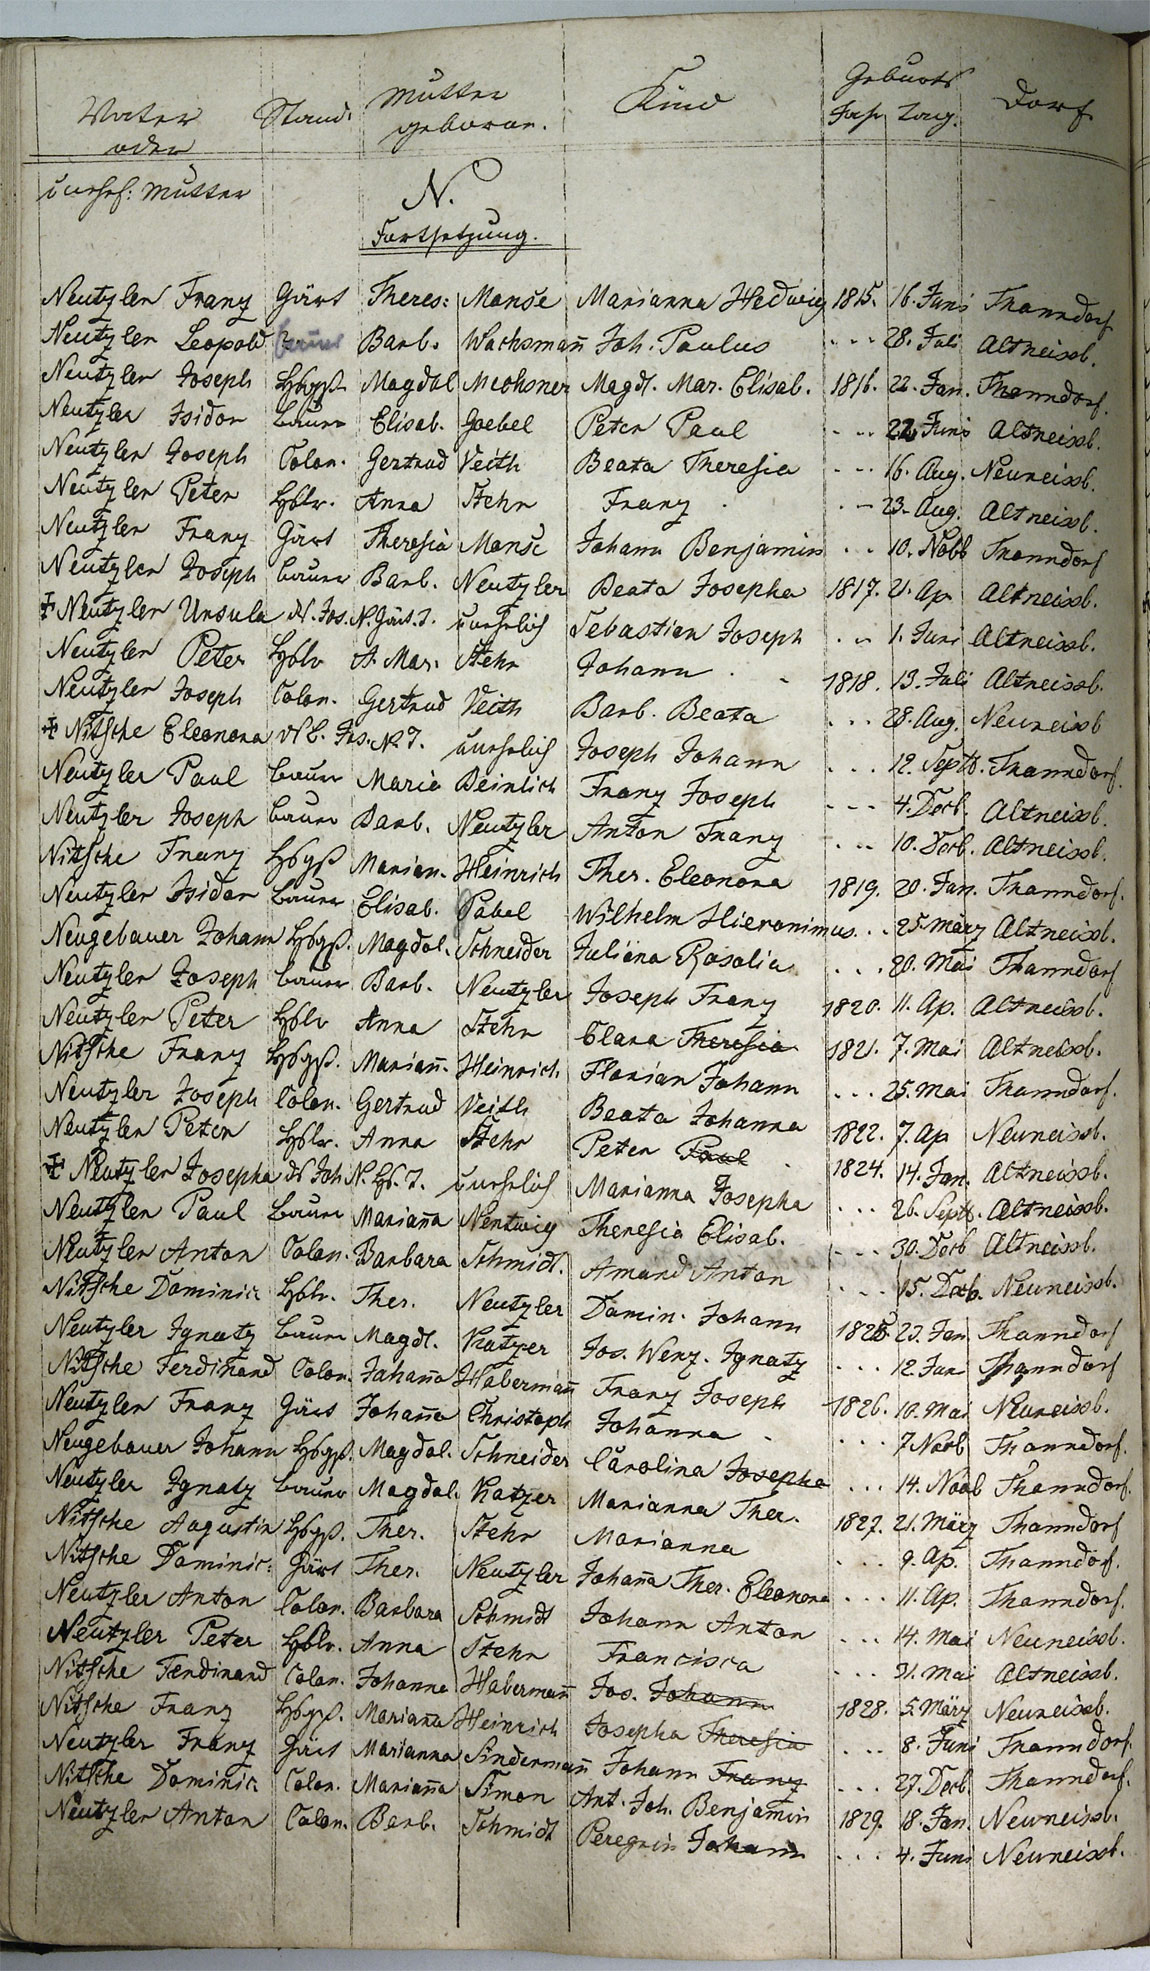 Vater Stand. Mutter Kind Geburts Dorf.
oder geboren. Jahr Tag.
unehel: Mutter N.
Fortsetzung.
Neutzler Franz Gärt Theres: Manse Marianna Hedwig 1815. 16. Juni Thanndorf
Neutzler Leopold Bauer Barb. Wachsmañ Joh. Paulus - - - 28. Juli Altneissb.
Neutzler Joseph Hbgß. Magdal Meohsner Magd. Mar. Elisab. 1816. 22. Jan. Thanndorf.
Neutzler Isidor Bauer Elisab. Goebel Peter Paul - - 22 Juni Altneissb.
Neutzler Joseph Colon. Gertrud Veith Beata Theresia - - - 16. Aug. Neuneissb.
Neutzler Peter Hßlr. Anna Stehr Franz . - - 23. Aug. Altneissb.
Neutzler Franz Gärt Theresia Manse Johann Benjamin - - - 10. Nobb Thanndorf
Neutzler Joseph Bauer Barb. Neutzler Beata Josepha 1817. 21. Ap Altneissb.
Neutzler Ursula d. Jos. N. Gärt. T. unehelich Sebastian Joseph - - 1. Juni Altneissb.
Neutzler Peter Hßlr A. Mar. Stehr Johann . - 1818. 13. Juli Altneissb.
Neutzler Joseph Colon. Gertrud Veith Barb. Beata . . . 28. Aug. Neuneissb
Nitsche Eleonora Jos. N. T. unehelich Joseph Johann . . . 12. Septb. Thanndorf.
Neutzler Paul Bauer Maria Beinlich Franz Joseph - - - 4. Decb. Altneissb.
Neutzler Joseph Bauer Barb. Neutzler Anton Franz - . . . 10. Decb. Altneissb.
Nitsche Franz Hbgß Marian. Heinrich Ther. Eleonora 1819. 20. Jan. Thanndorf.
Neutzler Isidor Bauer Elisab. Pabel Wilhelm Hieronimus . . . 25. März Altneissb.
Neugebauer Johann Hbgß. Magdal. Schneider Juliana Rosalia . . . 20. Mai Thanndorf
Neutzler Joseph Bauer Barb. Neutzler Joseph Franz 1820. 11. Ap. Altneissb.
Neutzler Peter Hßlr Anna Stehr Clara Theresia 1821. 7. Mai Altneissb.
Nitsche Franz Hbgß. Mariañ. Heinrich Florian Johann . . . 25. Mai Thanndorf.
Neutzler Joseph Colon. Gertrud Veith Beata Johanna 1822. 7. Ap Neuneissb.
Neutzler Peter Hßlr. Anna Stehr Peter Paul . 1824. 14. Jan. Altneissb.
Neutzler Josepha d. Joh N. Hß. T. unehelich Marianna Josepha . . . 26. Septb. Altneissb.
Neutzler Paul Bauer Mariaña Nentwig Theresia Elisab. . - - - 30. Decb Altneissb.
Neutzler Anton Colon. Barbara Schmidt. Amand Anton . . . 15. Decb. Neuneissb.
Nitsche Dominic Hßlr. Ther. Neutzler Domin. Johann 1825. 23. Jan. Thanndorf
Neutzler Ignatz Bauer Magdl. Katzer Jos. Wenz. Ignatz . . . 12. Jun Thanndorf
Nitsche Ferdinand Colon. Johaña Habermañ Franz Joseph 1826. 10. Mai Neuneissb.
Neutzler Franz Gärt Johaña Christoph Johanna . . . . 7 Novb Thanndorf.
Neugebauer Johann Hbgß. Magdal. Schneider Carolina Josepha . . . 14. Novb Thanndorf.
Neutzler Ignatz Bauer Magdal. Katzer Marianna Ther. 1827. 21. März Thanndorf
Nitsche Augustin Hbgß. Ther. Stehr Marianna . . . 9. Ap. Thanndorf.
Nitsche Dominic: Gärt Ther. Neutzler Johaña Ther. Eleonora . . . 11. Ap. Thanndorf.
Neutzler Anton Colon. Barbara Schmidt Johann Anton . . . 14. Mai Neuneissb.
Neutzler Peter Hßlr. Anna Stehr Francisca . . . 31. Mai Altneissb.
Nitsche Ferdinand Colon. Johanna Habermañ Jos. Johann 1828. 5. März Neuneissb.
Nitsche Franz Hbgß. Mariaña Heinrich Josepha Theresia . . . 8. Juni Thanndorf.
Neutzler Franz Gärt Marianna Sindermañ Johann Franz . . . 27. Decb. Thanndorf.
Nitsche Dominic Colon. Mariaña Simon Ant. Joh. Benjamin 1829. 18. Jan. Neuneissb.
Neutzler Anton Colon. Barb. Schmidt Peregrin Johann . . . 4. Juni Neuneissb.